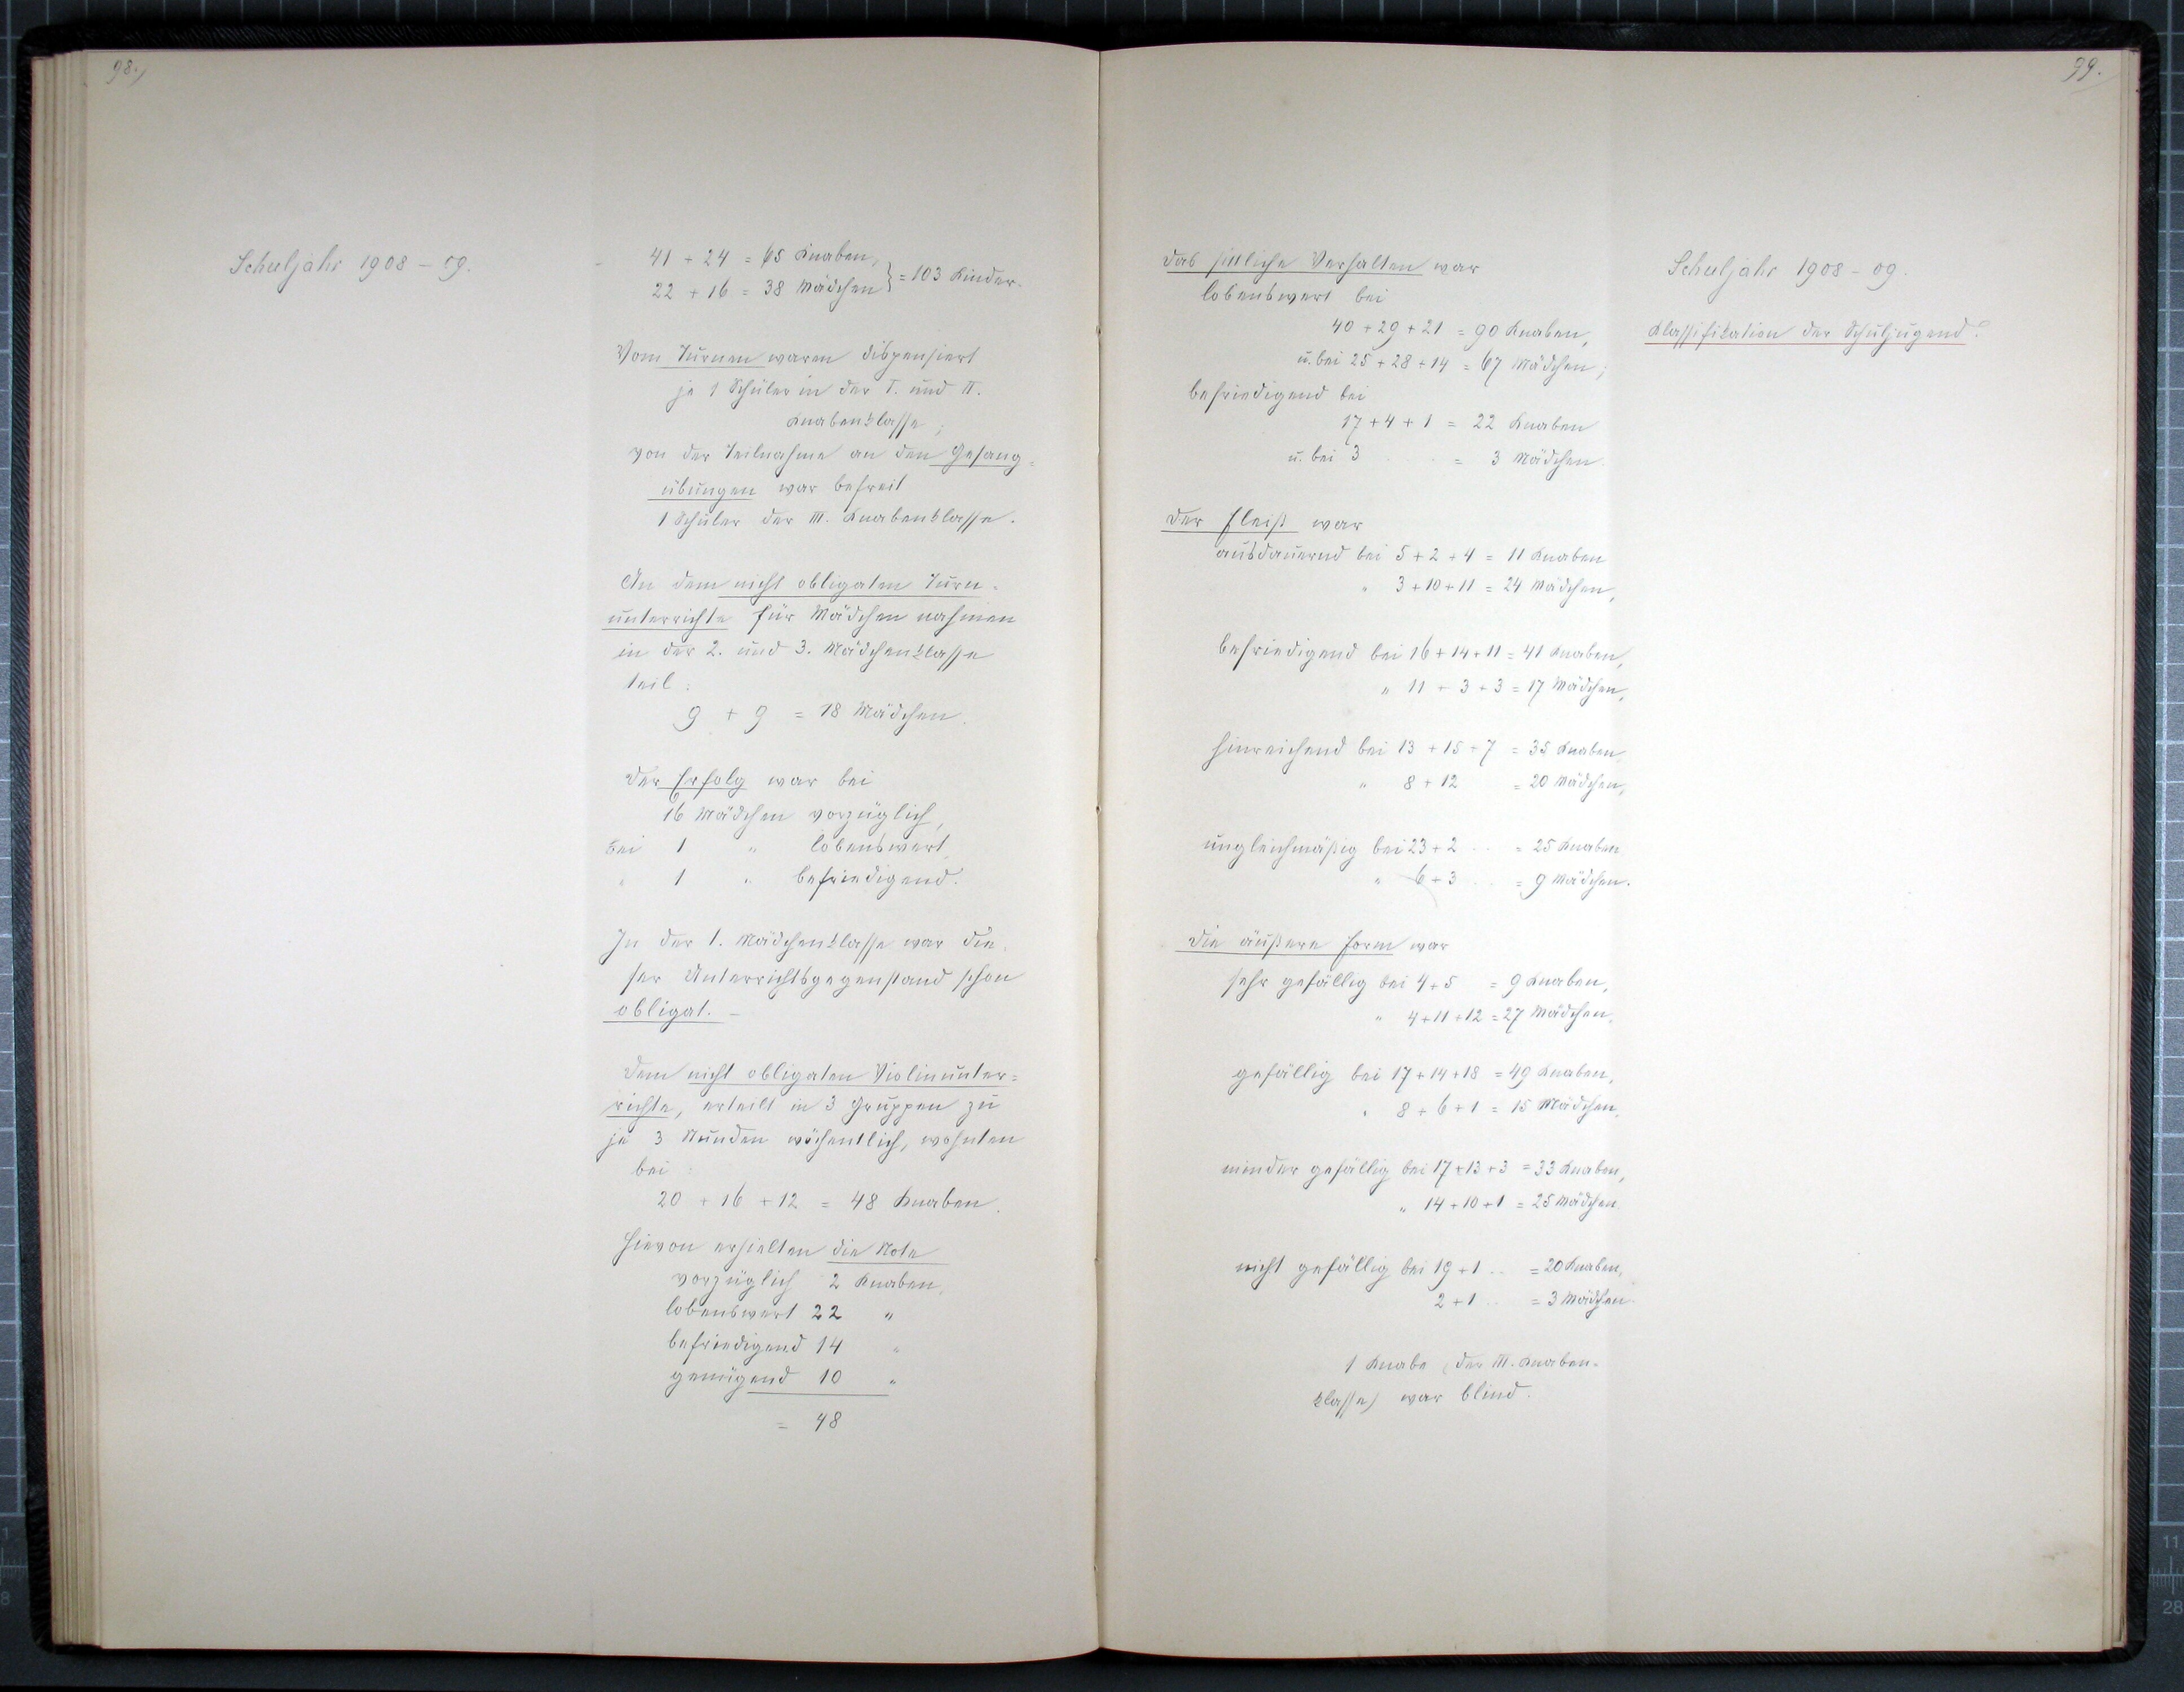 98.)
Schuljahr 1908 – 09.
41 + 24 = 65 Knaben,
22 + 16 = 38 Mädchen } = 103 Kinder.
Vom Turnen waren dispensiert
je 1 Schüler in der I. und II.
Knabenklasse;
von der Teilnahme an den Gesang=
übungen war befreit
1 Schüler der III. Knabenklasse.
An dem nicht obligaten Turn=
unterrichte für Mädchen nahmen
in der 2. und 3. Mädchenklasse
teil:
9 + 9 = 18 Mädchen.
Der Erfolg war bei
16 Mädchen vorzüglich,
bei 1 " lobenswert
" 1 " befriedigend.
In der 1. Mädchenklasse war die=
ser Unterrichtsgegenstand schon
obligat. –
Dem nicht obligaten Violinunter=
richte, erteilt in 3 Gruppen zu
je 3 Stunden wöchentlich, wohnten
bei:
20 + 16 + 12 = 48 Knaben.
Hievon erhielten die Note
vorzüglich 2 Knaben,
lobenswert 22 "
befriedigend 14 "
genügend 10 "
= 48
99.
Schuljahr 1908 – 09.
Klassifikation der Schuljugend.
Das sittliche Verhalten war
lobenswert bei
40 + 29 + 21 = 90 Knaben,
u. bei 25 + 28 + 14 = 67 Mädchen;
befriedigend bei
17 + 4 + 1 = 22 Knaben
u. bei 3 . . . = 3 Mädchen.
Der Fleiß war
ausdauernd bei 5 + 2 + 4 = 11 Knaben
" 3 + 10 + 11 = 24 Mädchen,
befriedigend bei 16 + 14 + 11 = 41 Knaben,
" 11 + 3 + 3 = 17 Mädchen,
hinreichend bei 13 + 15 + 7 = 35 Knaben,
" 8 + 12 = 20 Mädchen,
ungleichmäßig bei 23 + 2 . . = 25 Knaben
" 6 + 3 . . = 9 Mädchen.
Die äußere Form war
sehr gefällig bei 4 + 5 = 9 Knaben,
" 4 + 11 + 12 = 27 Mädchen,
gefällig bei 17 + 14 + 18 = 49 Knaben,
" 8 + 6 + 1 = 15 Mädchen,
minder gefällig bei 17 + 13 + 3 = 33 Knaben,
" 14 + 10 + 1 = 25 Mädchen.
nicht gefällig bei 19 + 1 . . = 20 Knaben,
2 + 1 . . = 3 Mädchen.
1 Knabe (der III. Knaben=
klasse) war blind.